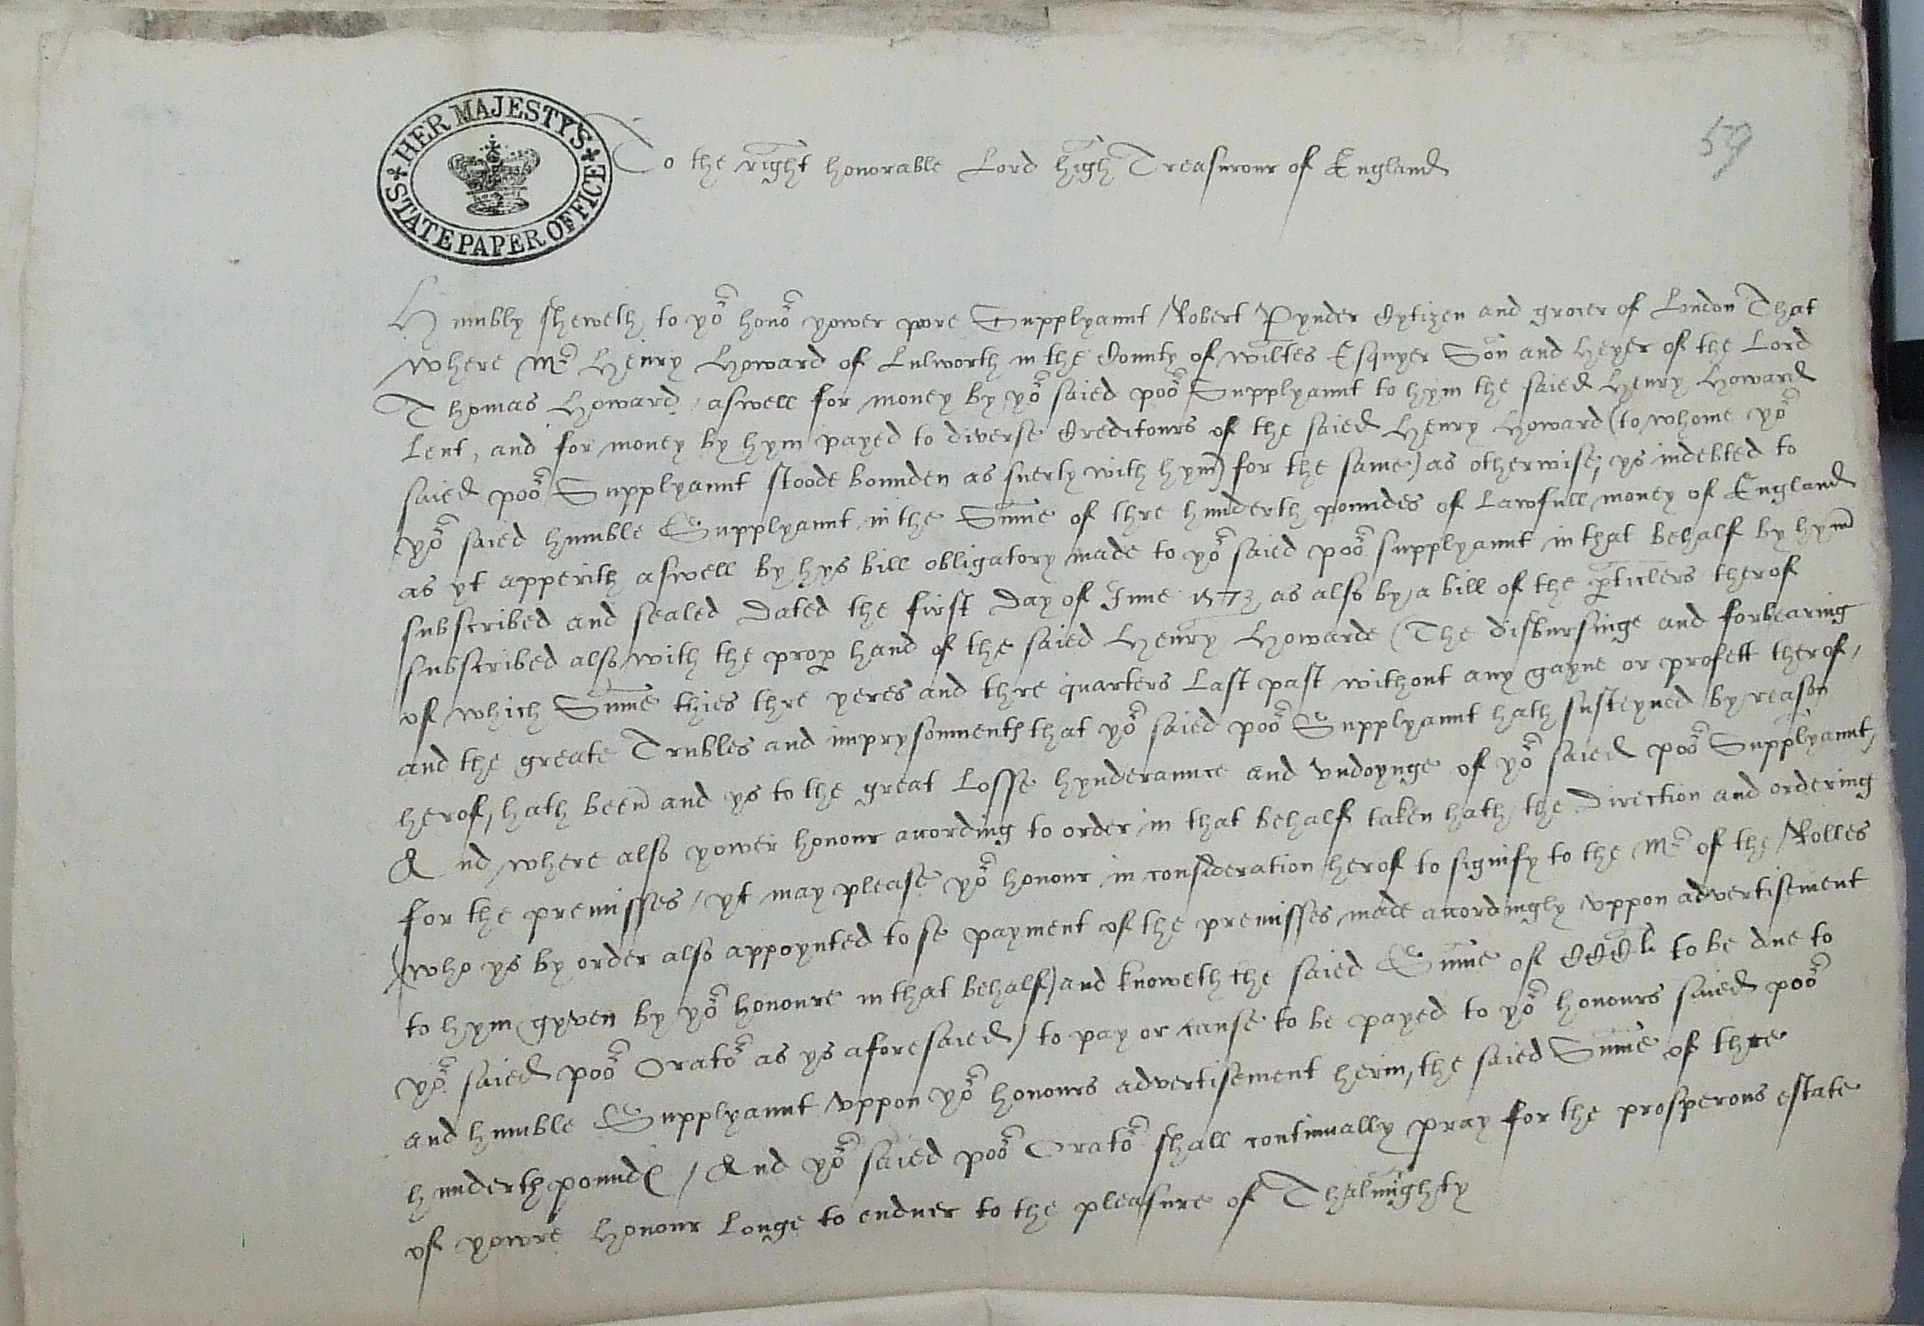 HER MAJESTY'S STATE PAPER OFFICE
59
To the right honorable Lord high Treasurour of England
Humbly sheweth to yor honor yower pore Supplyaunt Robert Pynder Cytizen and grocer of London That
where Mr Henry Howard of Lulworth in the County of wiltes Esquyer Son and Heyer of the Lord
Thomas Howard, aswell for money by yor saied poor Supplyaunt to hym the saied Henry Howard
Lent, and for money by hym payed to diverse Creditours of the saied Henry Howard (to whome yor
saied poor Supplyaunt stoode bounden as suerty with hym) for the same) as otherwise, ys indebted to
yor saied humble Supplyaunt in the Sume of thre hunderth poundes of Lawfull money of England
as yt apperith aswell by hys bill obligatory made to yor saied poor supplyaunt in that behalf by hym
subscribed and sealed Dated the first Day of June 1573 as also by a bill of the pticulers therof
subscribed also with the prop hand of the saied Henry Howarde (The disbursinge and forbearing
of which Sume thies thre yeres and thre quarters Last past without any gayne or profett therof,
and the greate Trubles and imprysonments that yor saied poor Supplyaunt hath susteyned by reason
herof, hath been and ys to the great Losse hynderaunce and vndoynge of yor saied poor Supplyaunt,
And where also yower honour acording to order in that behalf taken hath the Direction and ordering
for the premisses, yt may please yor honour in consideration herof to signify to the Mr of the Rolles
(who ys by order also appoynted to se payment of the premisses made acordingly vppon advertisement
to hym gyven by yor honoure in that behalf) and knoweth the saied Sume of CCCli to be due to
yor saied poor Orator as ys aforesaied) to pay or cause to be payed to yor honours saied poor
and humble Supplyaunt vppon yor honours advertisement herin, the saied Sume of thre
hunderth pounds, And yor saied poor Orator shall continually pray for the prosperous estate
of yowre Honour Longe to enduer to the pleasure of Thalmighty